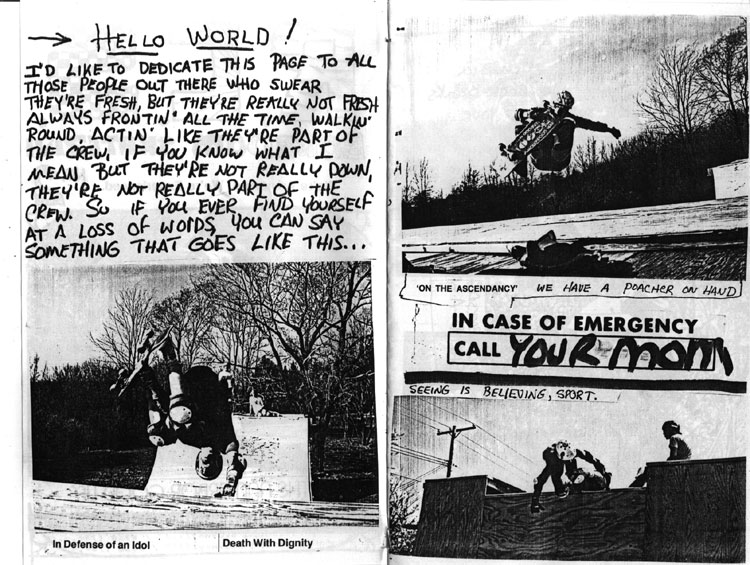 → HELLO WORLD!
I'D LIKE TO DEDICATE THIS PAGE TO ALL
THOSE PEOPLE OUT THERE WHO SWEAR
THEY'RE FRESH, BUT THEY'RE REALLY NOT FRESH
ALWAYS FRONTIN' ALL THE TIME, WALKIN'
'ROUND, ACTIN' LIKE THEY'RE PART OF
THE CREW, IF YOU KNOW WHAT I
MEAN. BUT THEY'RE NOT REALLY DOWN,
THEY'RE NOT REALLY PART OF THE
CREW. SO IF YOU EVER FIND YOURSELF
AT A LOSS OF WORDS, YOU CAN SAY
SOMETHING THAT GOES LIKE THIS...
In Defense of an Idol
Death With Dignity
'ON THE ASCENDANCY' WE HAVE A POACHER ON HAND
IN CASE OF EMERGENCY
CALL YOUR MOM
SEEING IS BELIEVING, SPORT.